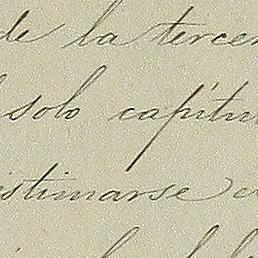 de la tercer
solo capítu
istimarse